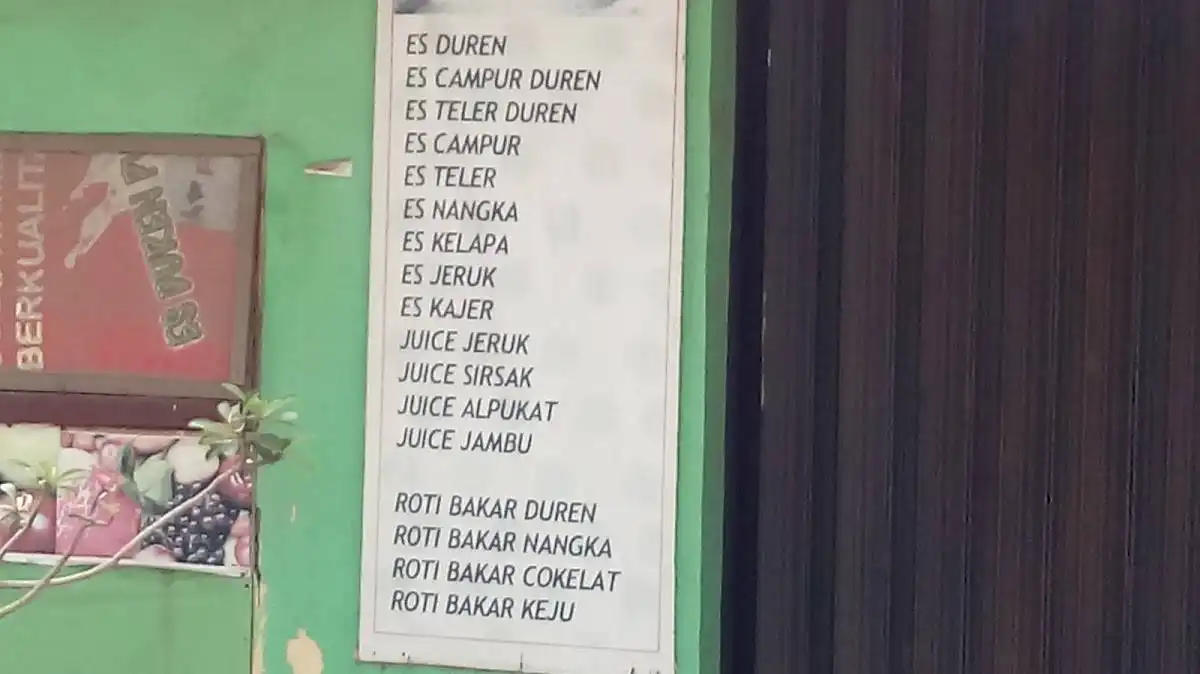 ES DUREN
ES CAMPUR DUREN
ES TELER DUREN
ES CAMPUR
ES TELER
ES NANGKA
ES KELAPA
ES JERUK
ES KAJER
JUICE JERUK
JUICE SIRSAK
JUICE ALPUKAT
JUICE JAMBU
ROTI BAKAR DUREN
ROTI BAKAR NANGKA
ROTI BAKAR COKELAT
ROTI BAKAR KEJU